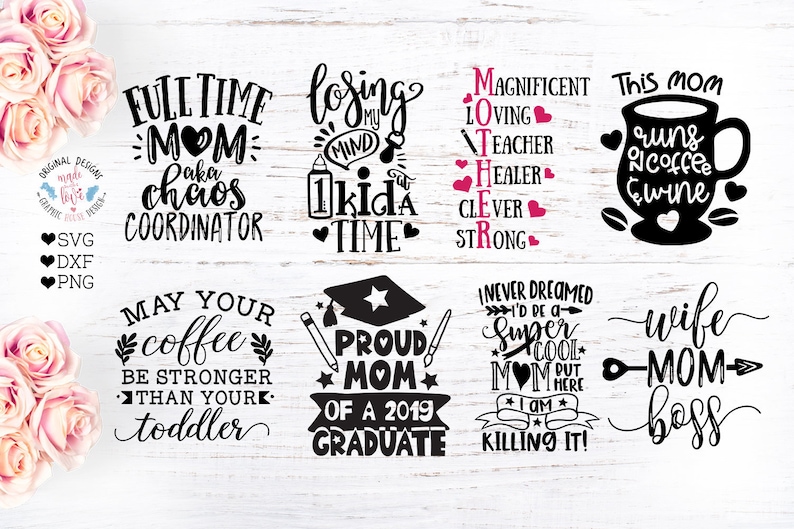 ORIGINAL DESIGNS
made with love
GRAPHIC HOUSE DESIGN
SVG
DXF
PNG
FULL TIME
MOM
aka
chaos
COORDINATOR
losing
MY
MIND
1 kid AT A
TIME
MAGNIFICENT
LOVING
TEACHER
HEALER
CLEVER
STRONG
THIS MOM
runs
ON COFFEE
& WINE
MAY YOUR
coffee
BE STRONGER
THAN YOUR
toddler
PROUD
MOM
OF A 2019
GRADUATE
I NEVER DREAMED
I'D BE A
Super
COOL
MOM BUT
HERE
I AM
KILLING IT!
wife
MOM
boss